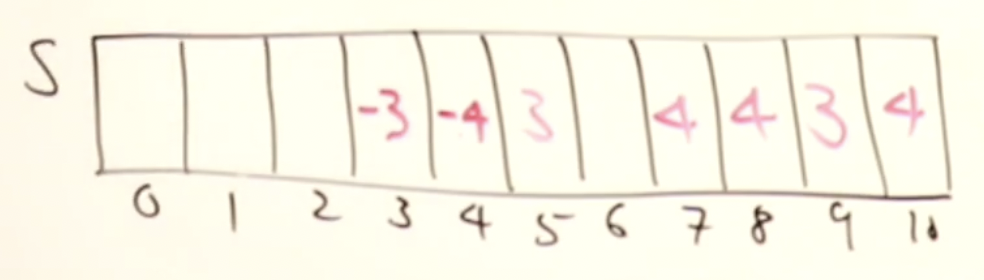 S -3 -4 3 4 4 3 4
0 1 2 3 4 5 6 7 8 9 10